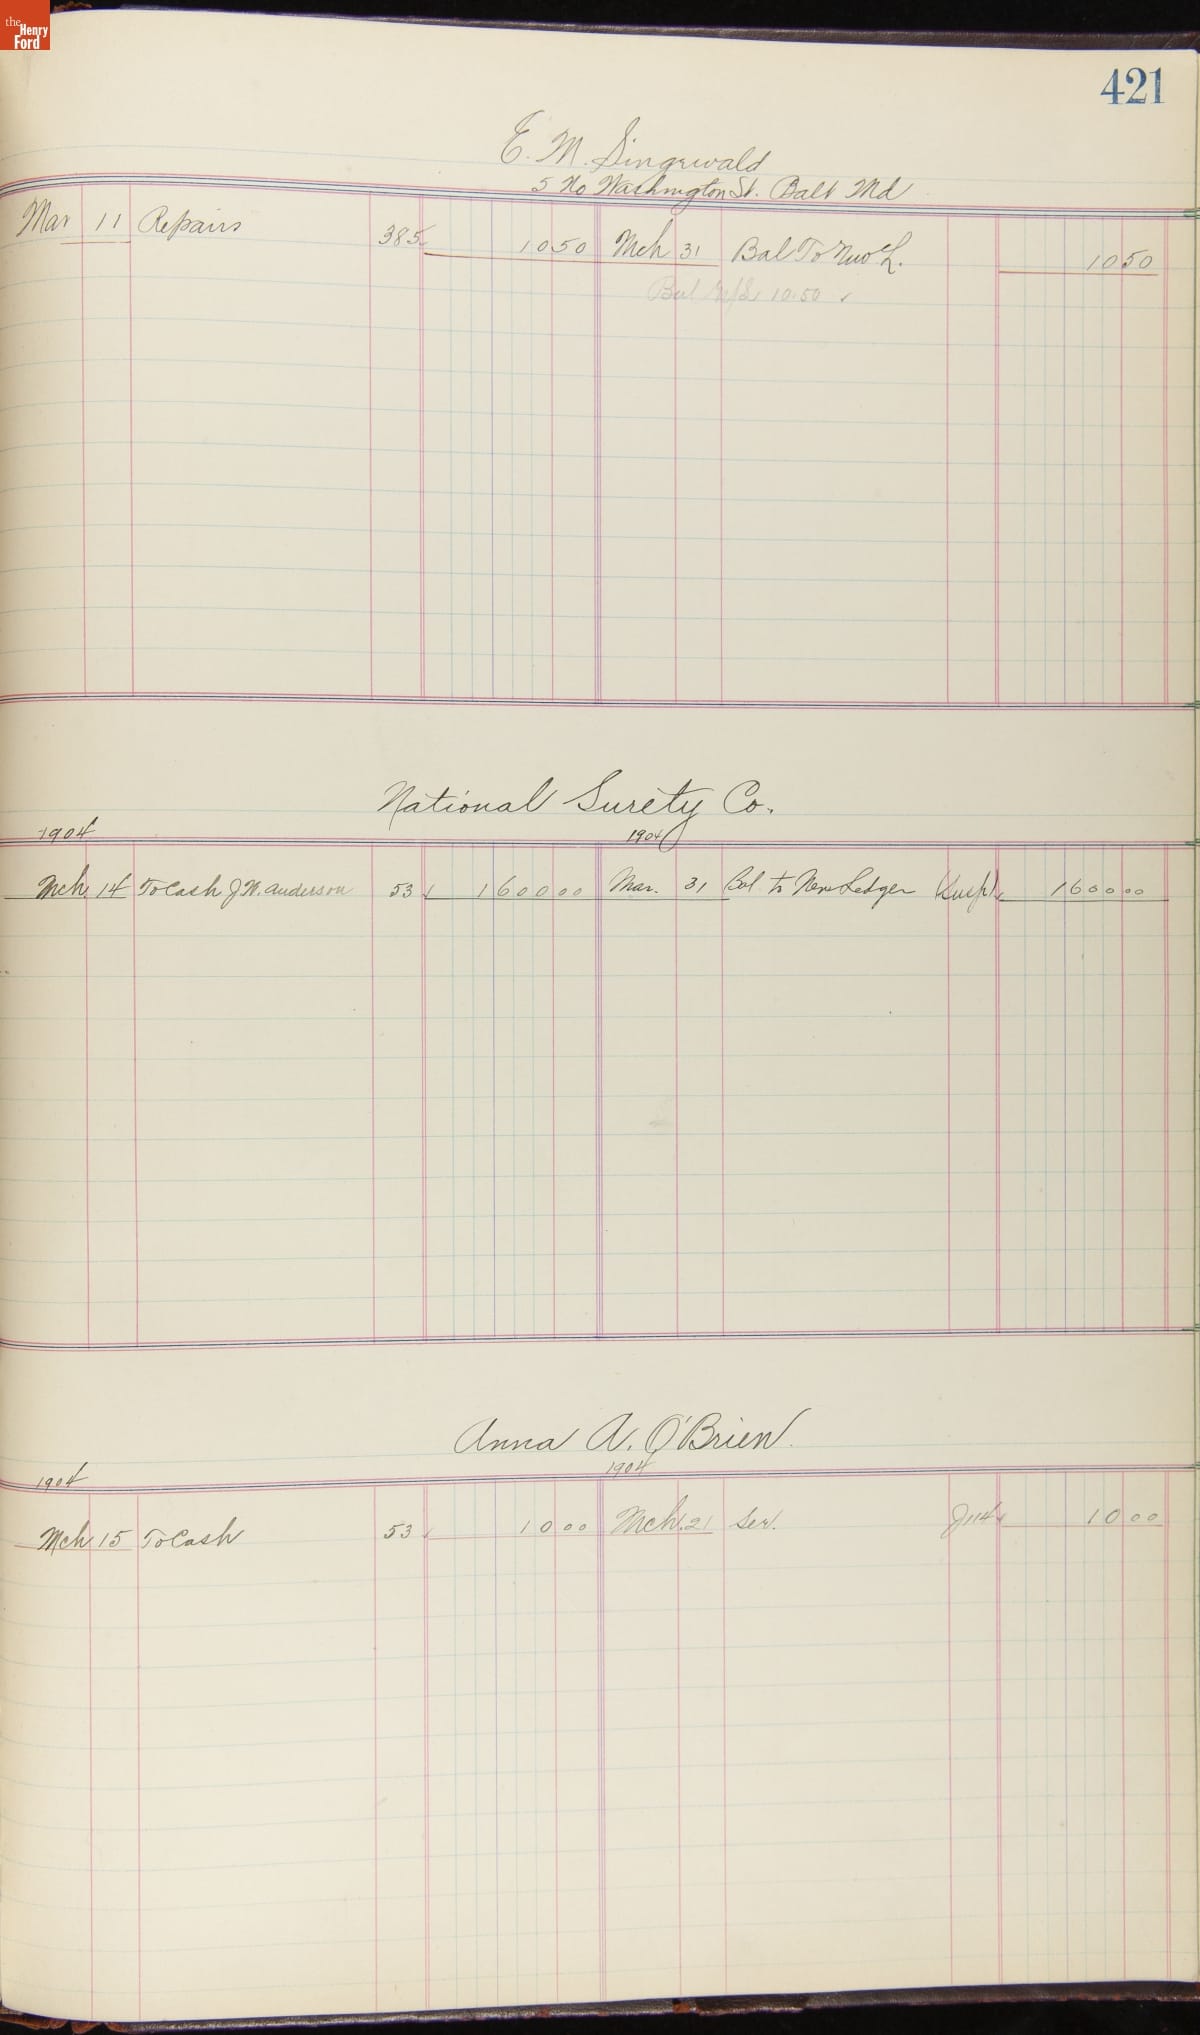 the Henry Ford
421
E. M. Singewald
5 No Washington St. Balt Md
Mar 11 Repairs 385 10 50 Mch 31 Bal To New L. 10 50
Bal 10.50
National Surety Co.
1904 1904
Mch 14 To Cash J.W. Anderson 53 1600 00 Mar. 31 Bal to New Ledger 1600 00
Anna A. O'Brien.
1904 1904
Mch 15 To Cash 53 10 00 Mch 21 Ser. J114 10 00